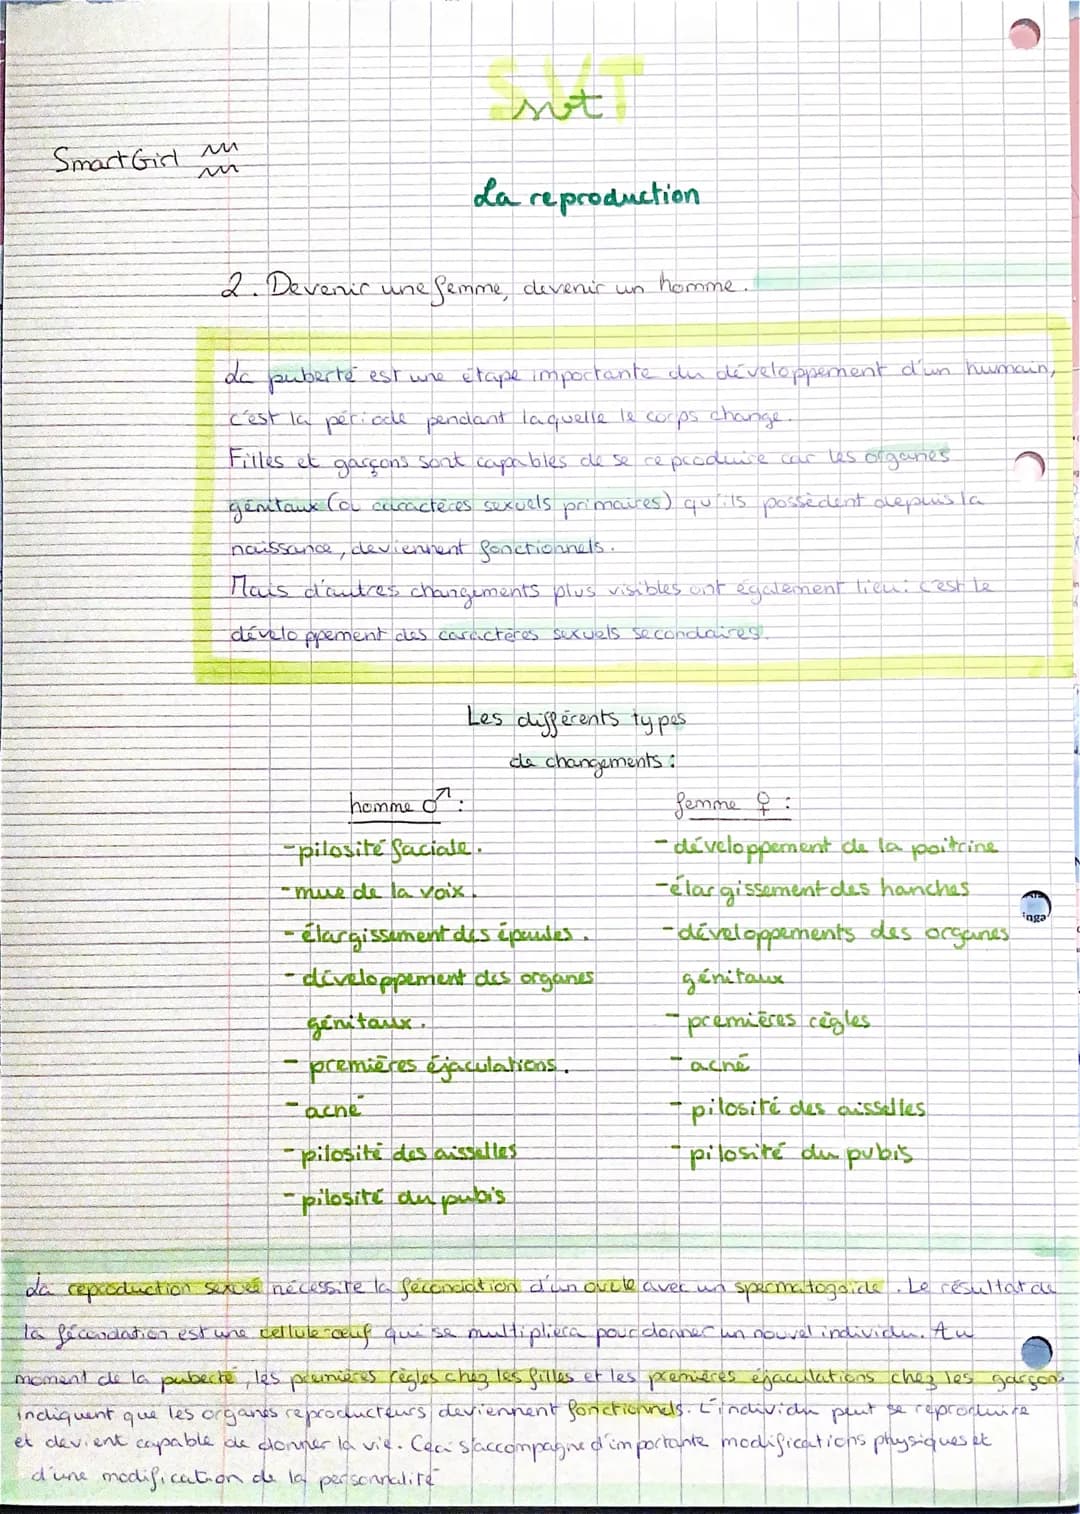 SVT
svt
SmartGirl
La reproduction
2. Devenir une femme, devenir un homme.
La puberté est une étape importante du développement d'un humain,
c'est la période pendant laquelle le corps change.
Filles et garçons sont capables de se reproduire car les organes
génitaux (ou caractères sexuels primaires) qu'ils possèdent depuis la
naissance, deviennent fonctionnels.
Mais d'autres changements plus visibles ont également lieu: c'est le
développement des caractères sexuels secondaires.
Les différents types
de changements :
homme ♂ :
-pilosité faciale.
-mue de la voix.
-élargissement des épaules.
-développement des organes
génitaux.
-premières éjaculations.
-acné
-pilosité des aisselles
-pilosité du pubis
femme ♀ :
-développement de la poitrine
-élargissement des hanches
-développements des organes
génitaux
-premières règles
-acné
-pilosité des aisselles
-pilosité du pubis
inga
La reproduction sexuée nécessite la fécondation d'un ovule avec un spermatozoïde. Le résultat de
la fécondation est une cellule-œuf qui se multipliera pour donner un nouvel individu. Au
moment de la puberté, les premières règles chez les filles et les premières éjaculations chez les garçons
indiquent que les organes reproducteurs deviennent fonctionnels. L'individu peut se reproduire
et devient capable de donner la vie. Ceci s'accompagne d'importante modifications physiques et
d'une modification de la personnalité